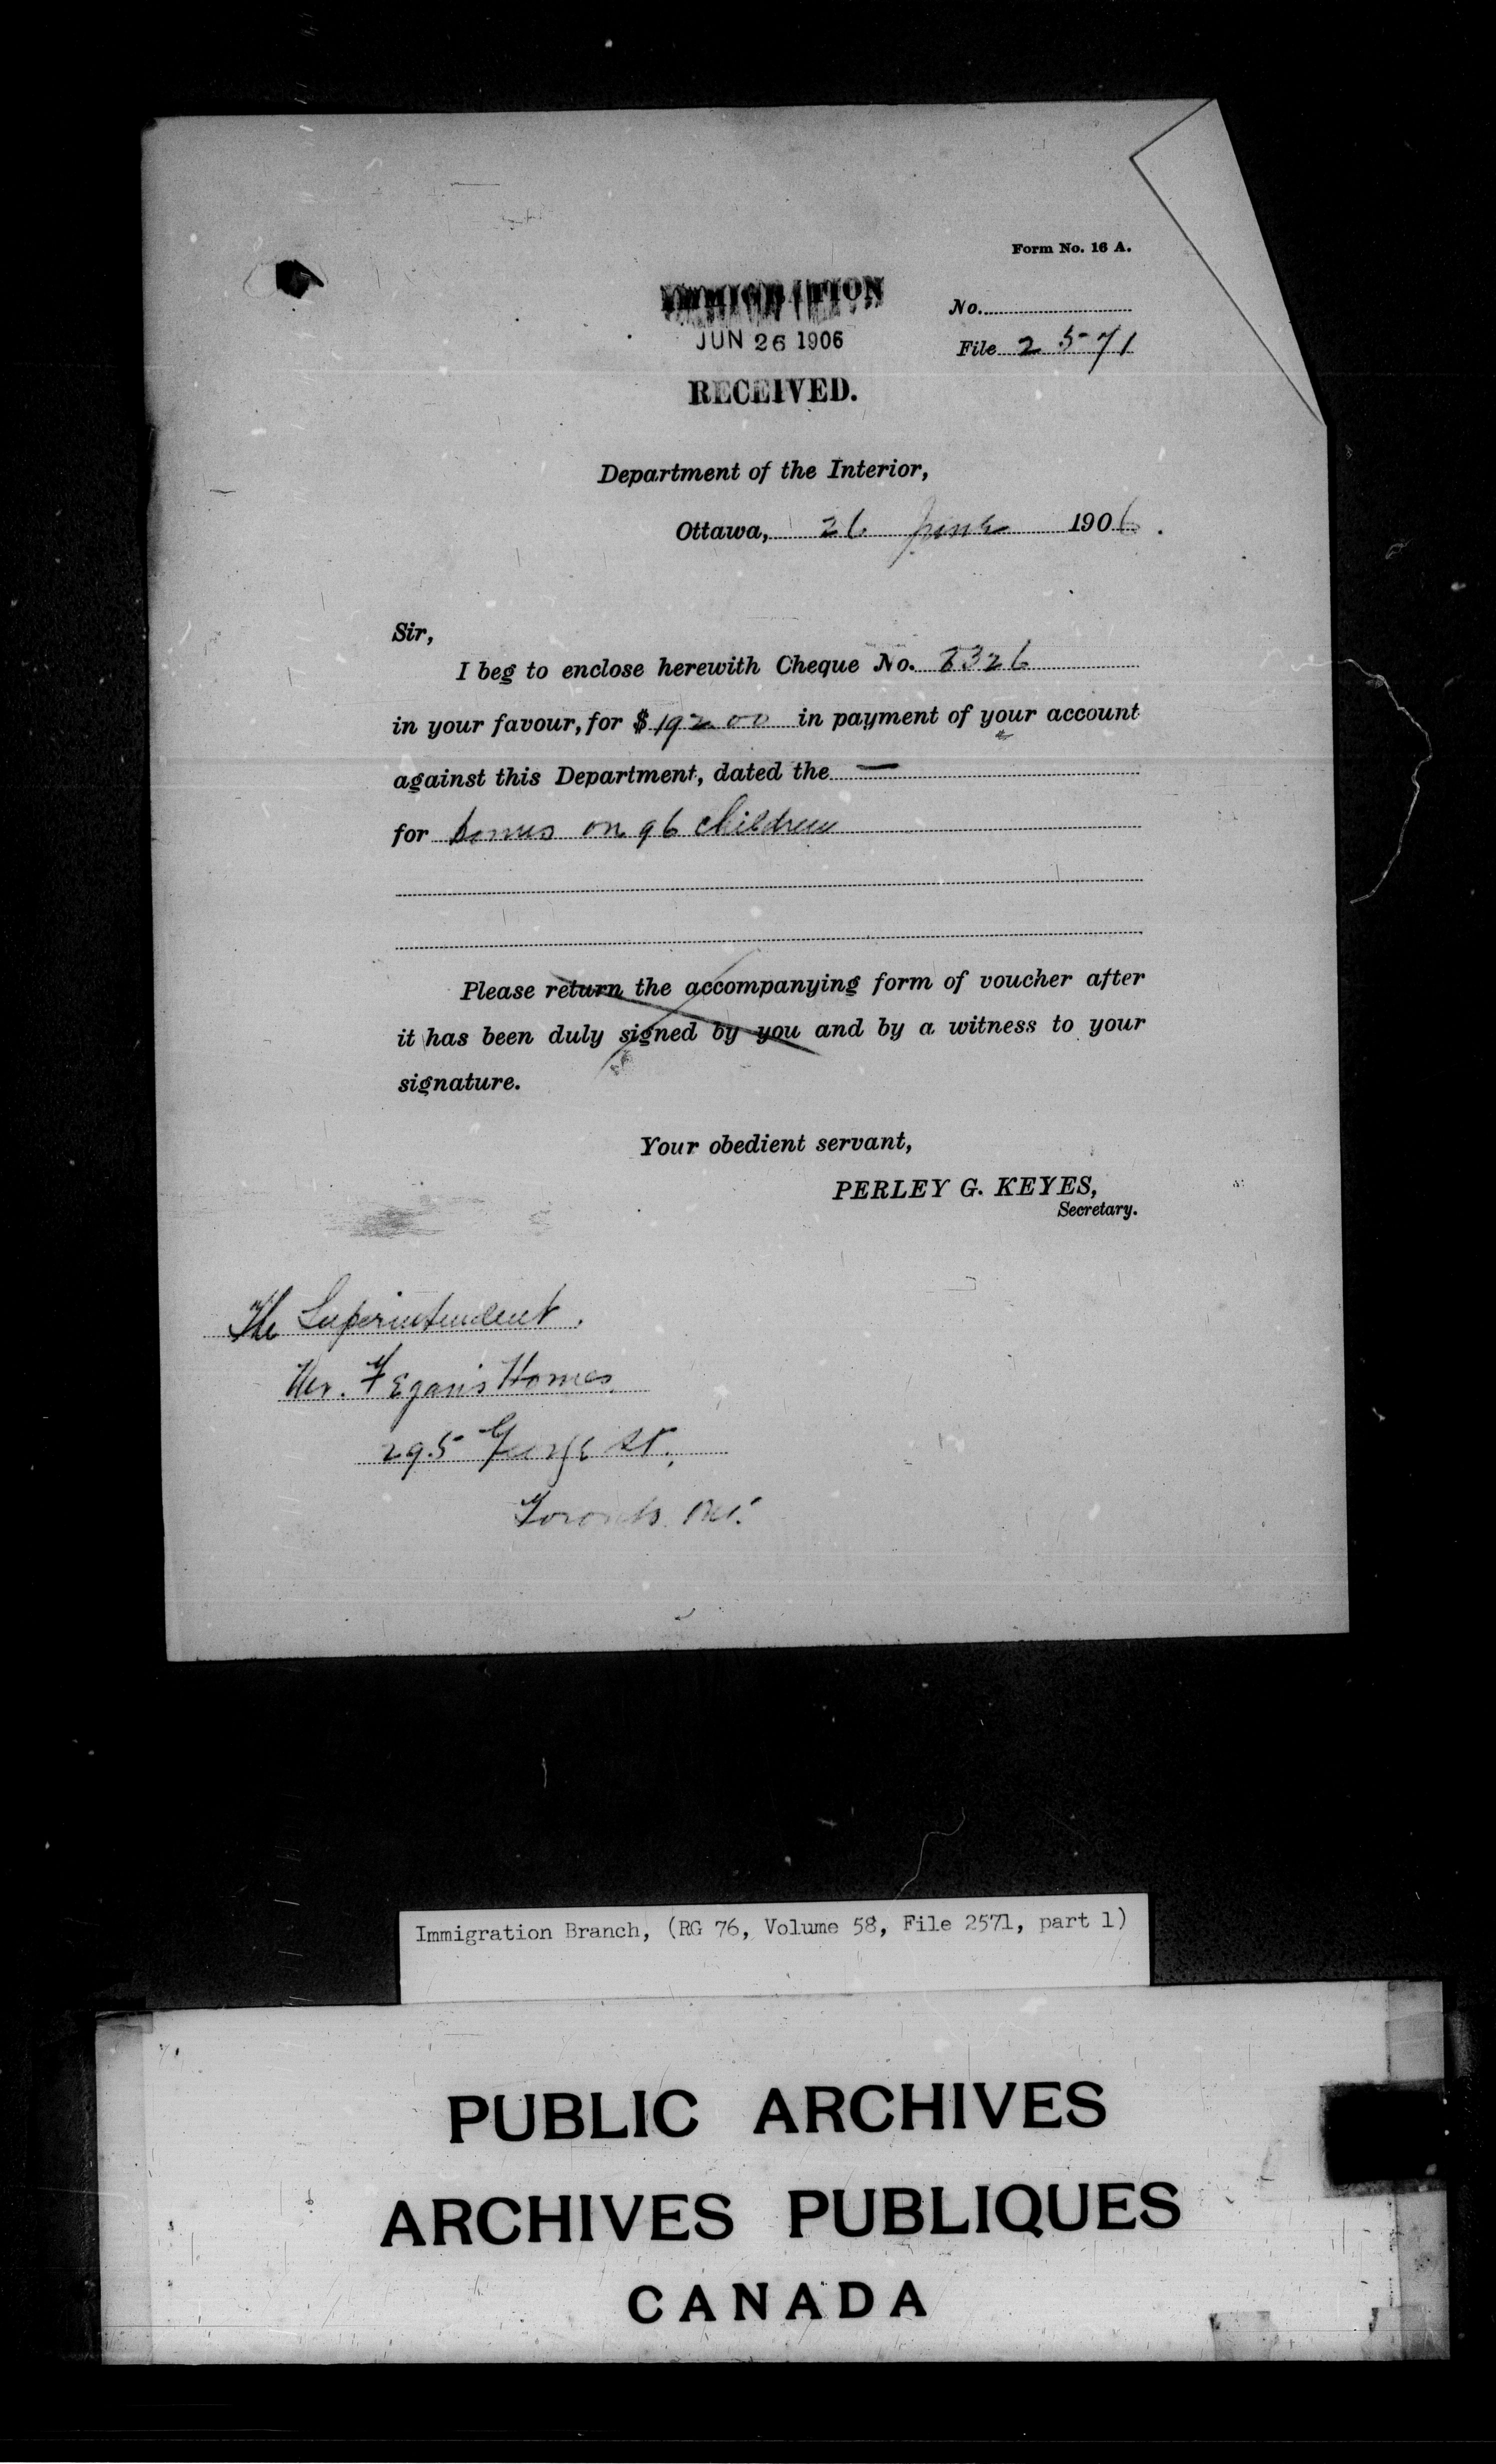 Form No. 16 A.
IMMIGRATION
No.
JUN 26 1906
File 2571
RECEIVED.
Department of the Interior,
Ottawa, 26 June 1906.
Sir,
I beg to enclose herewith Cheque No. 8326
in your favour, for $ 192 00 in payment of your account
against this Department, dated the —
for bonus on 96 children
Please return the accompanying form of voucher after
it has been duly signed by you and by a witness to your
signature.
Your obedient servant,
PERLEY G. KEYES,
Secretary.
The Superintendent.
Mr. Fegan's Homes
295 George St.,
Toronto Ont.
Immigration Branch, (RG 76, Volume 58, File 2571, part 1)
PUBLIC ARCHIVES
ARCHIVES PUBLIQUES
CANADA